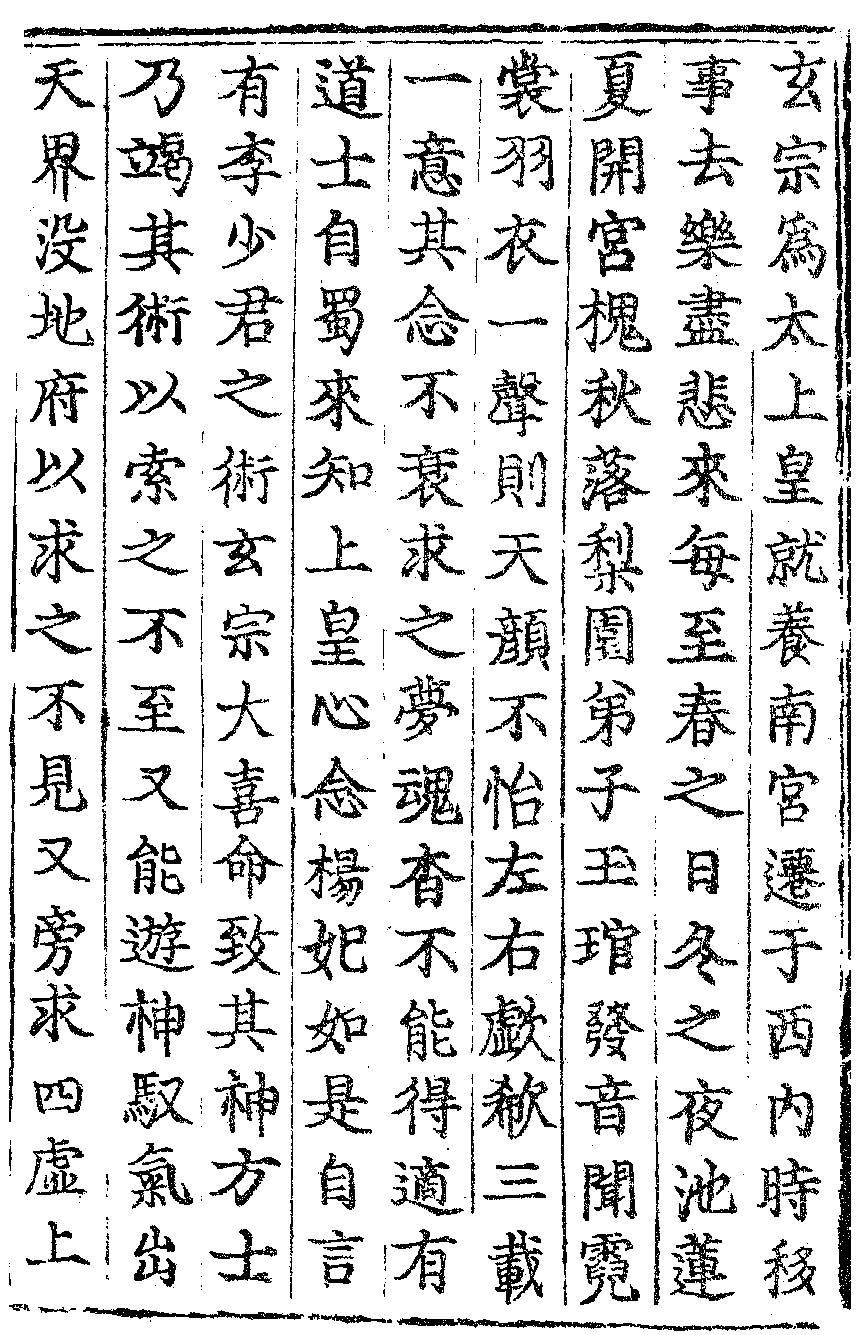 玄宗爲太上皇就養南宮遷于西内時移
事去樂盡悲來每至春之日冬之夜池蓮
夏開宮槐秋落梨園弟子玉琯發音聞霓
裳羽衣一聲則天顔不怡左右歔欷三載
一意其念不衰求之夢魂杳不能得適有
道士自蜀來知上皇心念楊妃如是自言
有李少君之術玄宗大喜命致其神方士
乃竭其術以索之不至又能遊神馭氣出
天界没地府以求之不見又旁求四虛上